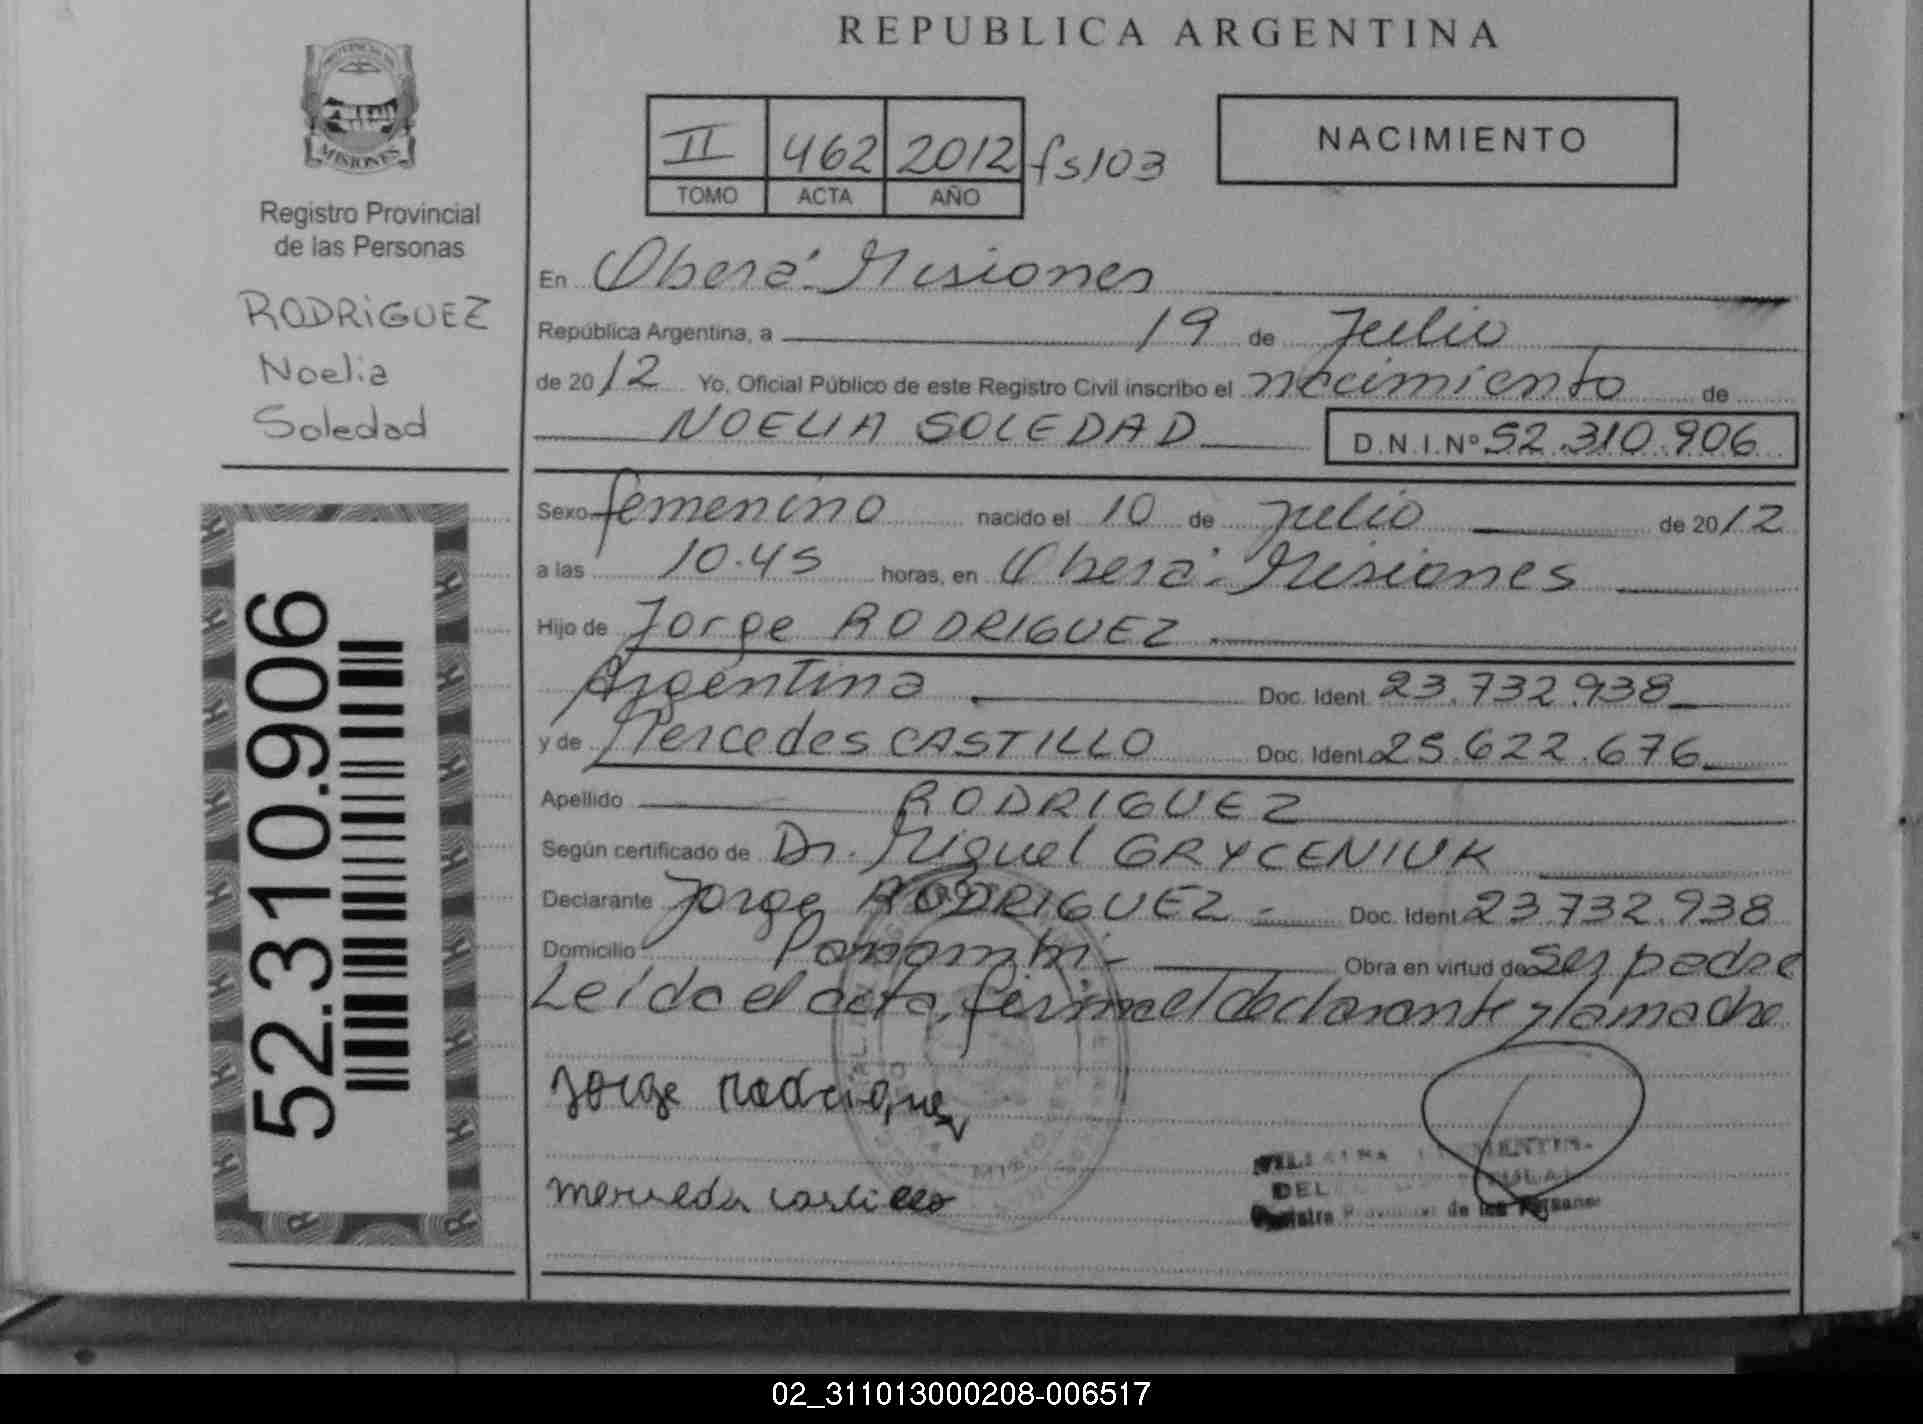 REPUBLICA ARGENTINA
PROVINCIA DE
MISIONES
Registro Provincial
de las Personas
RODRIGUEZ
Noelia
Soledad
52.310.906
II 462 2012 fs 103
TOMO ACTA AÑO
NACIMIENTO
En Oberá - Misiones
República Argentina, a 19 de Julio
de 2012 Yo, Oficial Público de este Registro Civil inscribo el nacimiento de
NOELIA SOLEDAD D.N.I.Nº 52.310.906
Sexo femenino nacido el 10 de Julio de 2012
a las 10.45 horas, en Oberá - Misiones
Hijo de Jorge RODRIGUEZ
Argentina Doc. Ident. 23.732.938
y de Mercedes CASTILLO Doc. Ident. 25.622.676
Apellido RODRIGUEZ
Según certificado de Dr. Miguel GRYCENIUK
Declarante Jorge RODRIGUEZ - Doc. Ident. 23.732.938
Domicilio Panambí - Obra en virtud de ser padre
Leída el acta, firma el declarante y la madre
Jorge Rodriguez
mercedes castillo
DEL
de las Personas
02_311013000208-006517